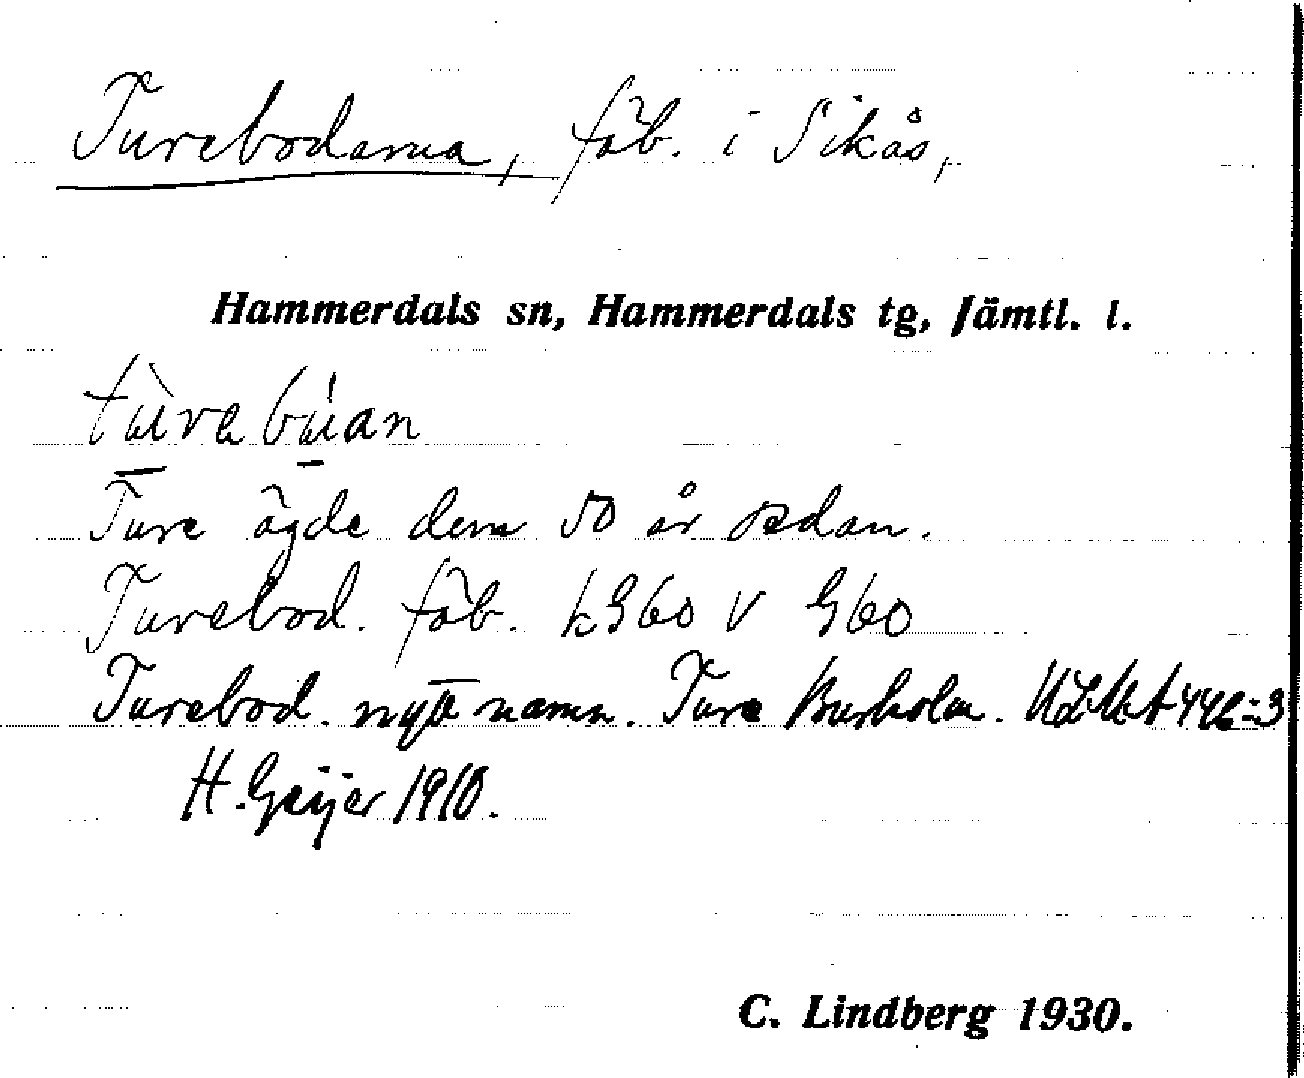 Turebodarna, fäb. i Sikås,
Hammerdals sn, Hammerdals tg, Jämtl. l.
tùrebúan
Ture ägde dem 50 år sedan.
Turebod. fäb. k G60 V G60
Turebod. nytt namn. Ture Burholm.
H. Geijer 1910.
C. Lindberg 1930.